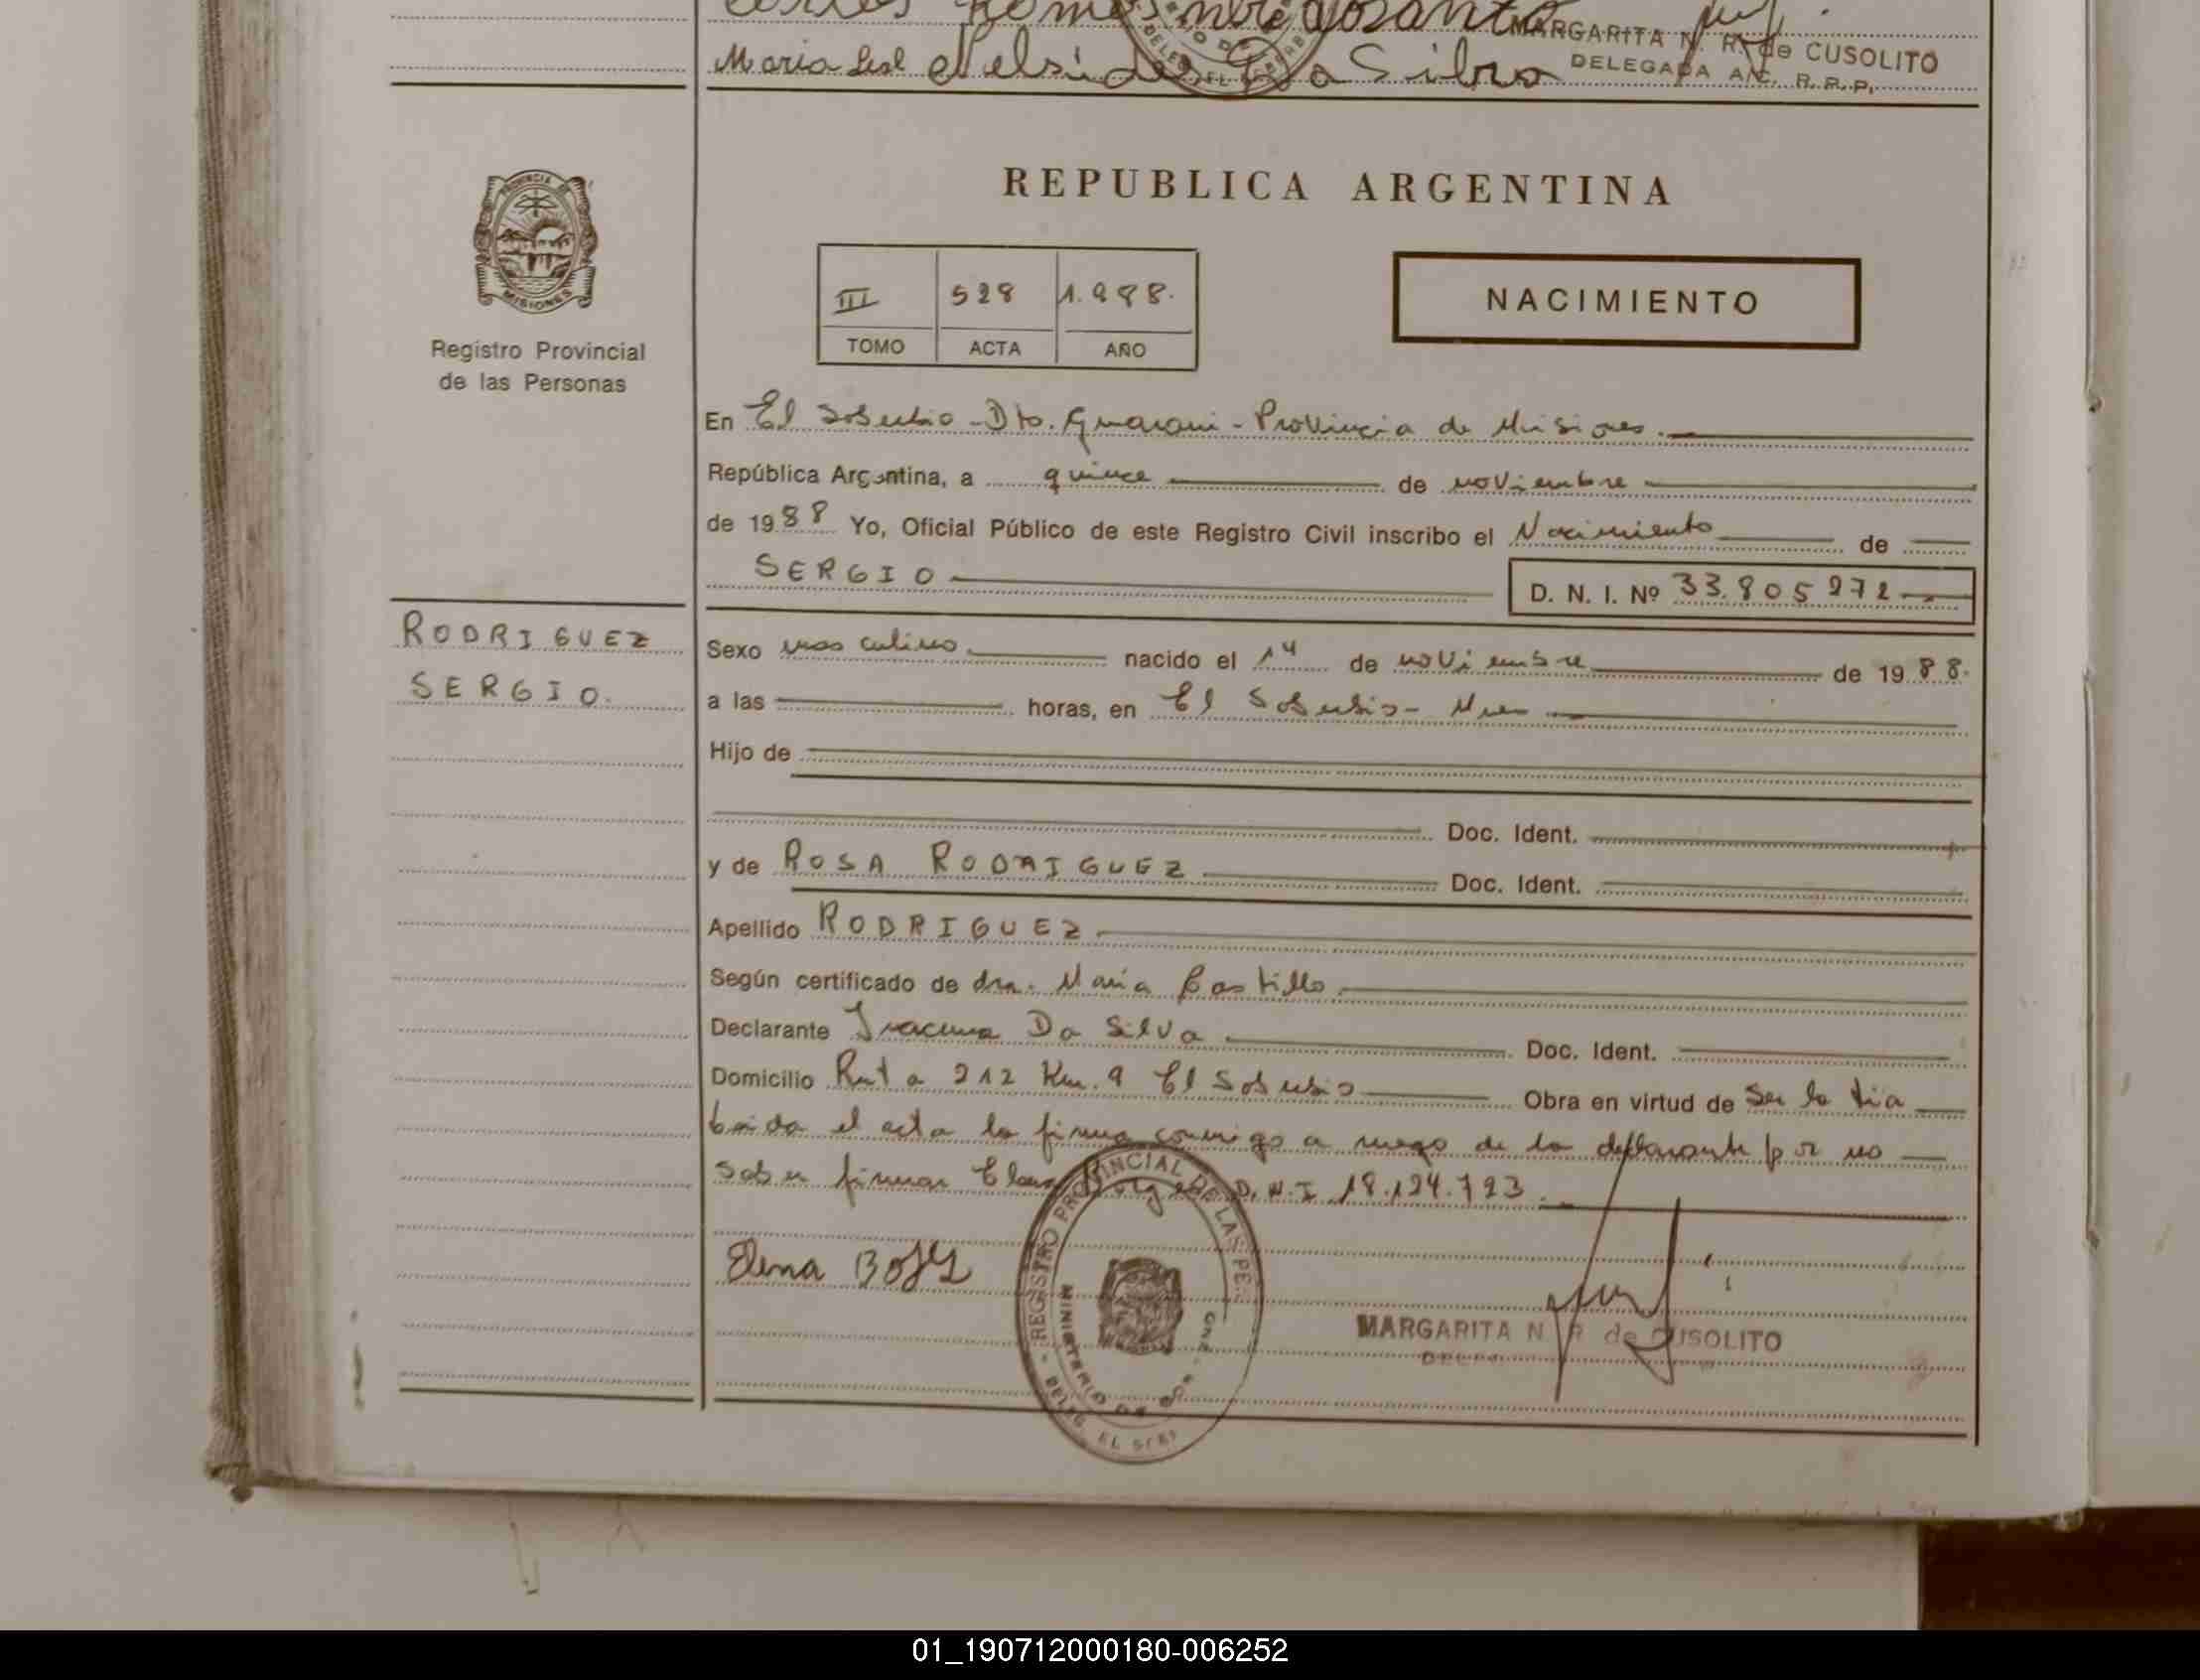 Carlos
MARGARITA N. R. de CUSOLITO
Maria Leal Nelsi de Da Silva
DELEGADA A/C. R. P. P.
PROVINCIA DE
MISIONES
Registro Provincial
de las Personas
REPUBLICA ARGENTINA
III 528 1.988.
TOMO ACTA AÑO
NACIMIENTO
En El Soberbio - Dto. Guarani - Provincia de Misiones.
República Argentina, a quince de noviembre
de 1988 Yo, Oficial Público de este Registro Civil inscribo el Nacimiento de
SERGIO
D. N. I. Nº 33.805 272
RODRIGUEZ
SERGIO.
Sexo masculino nacido el 14 de noviembre de 1988.
a las horas, en El Soberbio - Mnes
Hijo de
Doc. Ident.
y de ROSA RODRIGUEZ Doc. Ident.
Apellido RODRIGUEZ
Según certificado de dra. Maria Castillo
Declarante Iracema Da Silva Doc. Ident.
Domicilio Ruta 212 Km. 9 El Soberbio Obra en virtud de Ser la tia
Leida el acta la firma conmigo a ruego de la declarante por no
saber firmar D.N.I 18.124.723.
Elena
REGISTRO PROVINCIAL DE LAS PER
MINISTERIO DE GNO
DELEG. EL SOB
MARGARITA N R de CUSOLITO
01_190712000180-006252